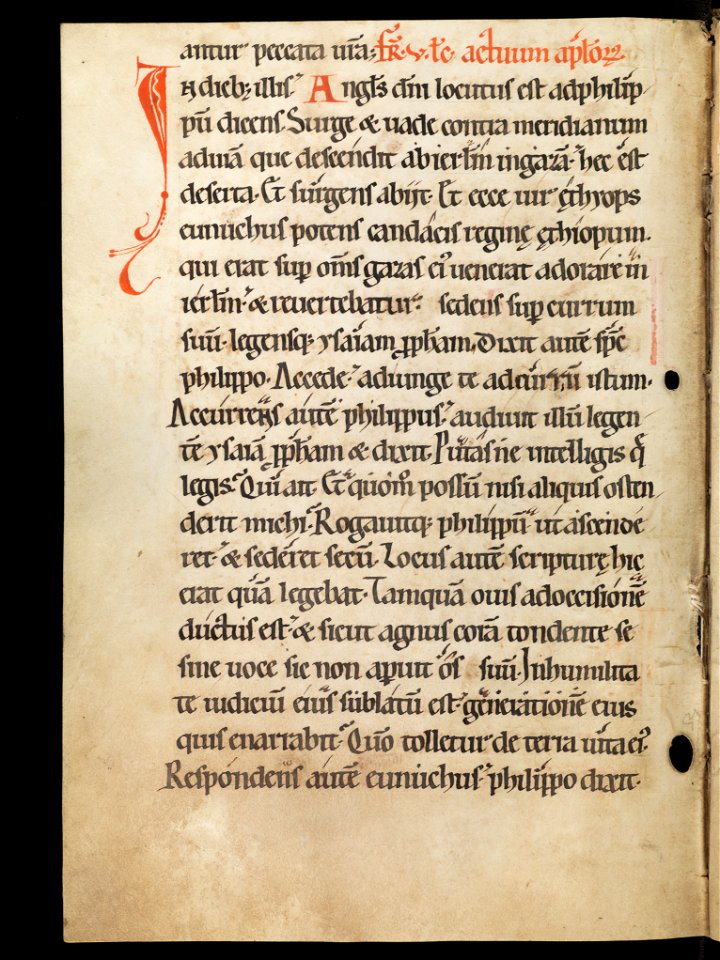 antur peccata ura̅; fr̅. v. le̅c̅ actuum ap̅lor̅ꝝ
IN dieb; illis. Angl̅s dn̅i locutus est ad philip
pu̅ dicens. Surge & uade contra meridianum
ad uia̅ que descendit ab ierl̅m in gaza̅. hec est
deserta. Et surgens abijt. Et ecce uir ęthyops
eunuchus potens candacis reginę ęthiopum.
qui erat sup̅ om̅s gazas ei᾽ uenerat adorare in
ierl̅m. & reuertebatur. sedens sup̅ currum
suu̅. legensq; ysaiam p̅p̅ham. Dixit aute̅ sp̅c
philippo. Accede. adiunge te ad curru̅ istum.
Accurrens aute̅ philippus. audiuit illu̅ legen
te̅ ysaia̅ p̅p̅ham & dixit. Putas ne intelligis q̅
legis. Qui ait. Et quom̅ possu̅ nisi aliquis osten
derit michi. Rogauitq; philippu̅ ut ascende
ret. & sederet secu̅. Locus aute̅ scripturę hic
erat qua̅ legebat. Tamqua̅ ouis ad occisione̅
ductus est. & sicut agnus cora̅ tondente se
sine uoce sic non aperuit os suu̅. In humilita
te iudiciu̅ eius sublatu̅ est. generatione̅ eius
quis enarrabit. Quo̅ tolletur de terra uita ei᾽.
Respondens aute̅ eunuchus. philippo dixit.